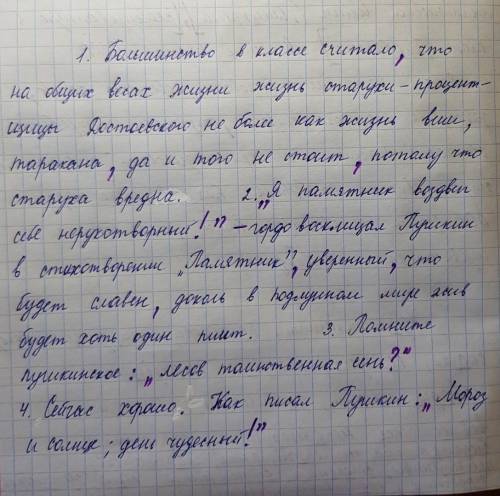 1. Большинство в классе считало, что
на общих весах жизни жизнь старухи-процент-
щицы Достоевского не более как жизнь вши,
таракана, да и того не стоит, потому что
старуха вредна. 2. „Я памятник воздвиг
себе нерукотворный!” – гордо восклицал Пушкин
в стихотворении „Памятник”, уверенный, что
будет славен, доколь в подлунном мире жив
будет хоть один пиит. 3. Помните
пушкинское: „лесов таинственная сень?”
4. Сейчас хорошо. Как писал Пушкин: „Мороз
и солнце; день чудесный!”